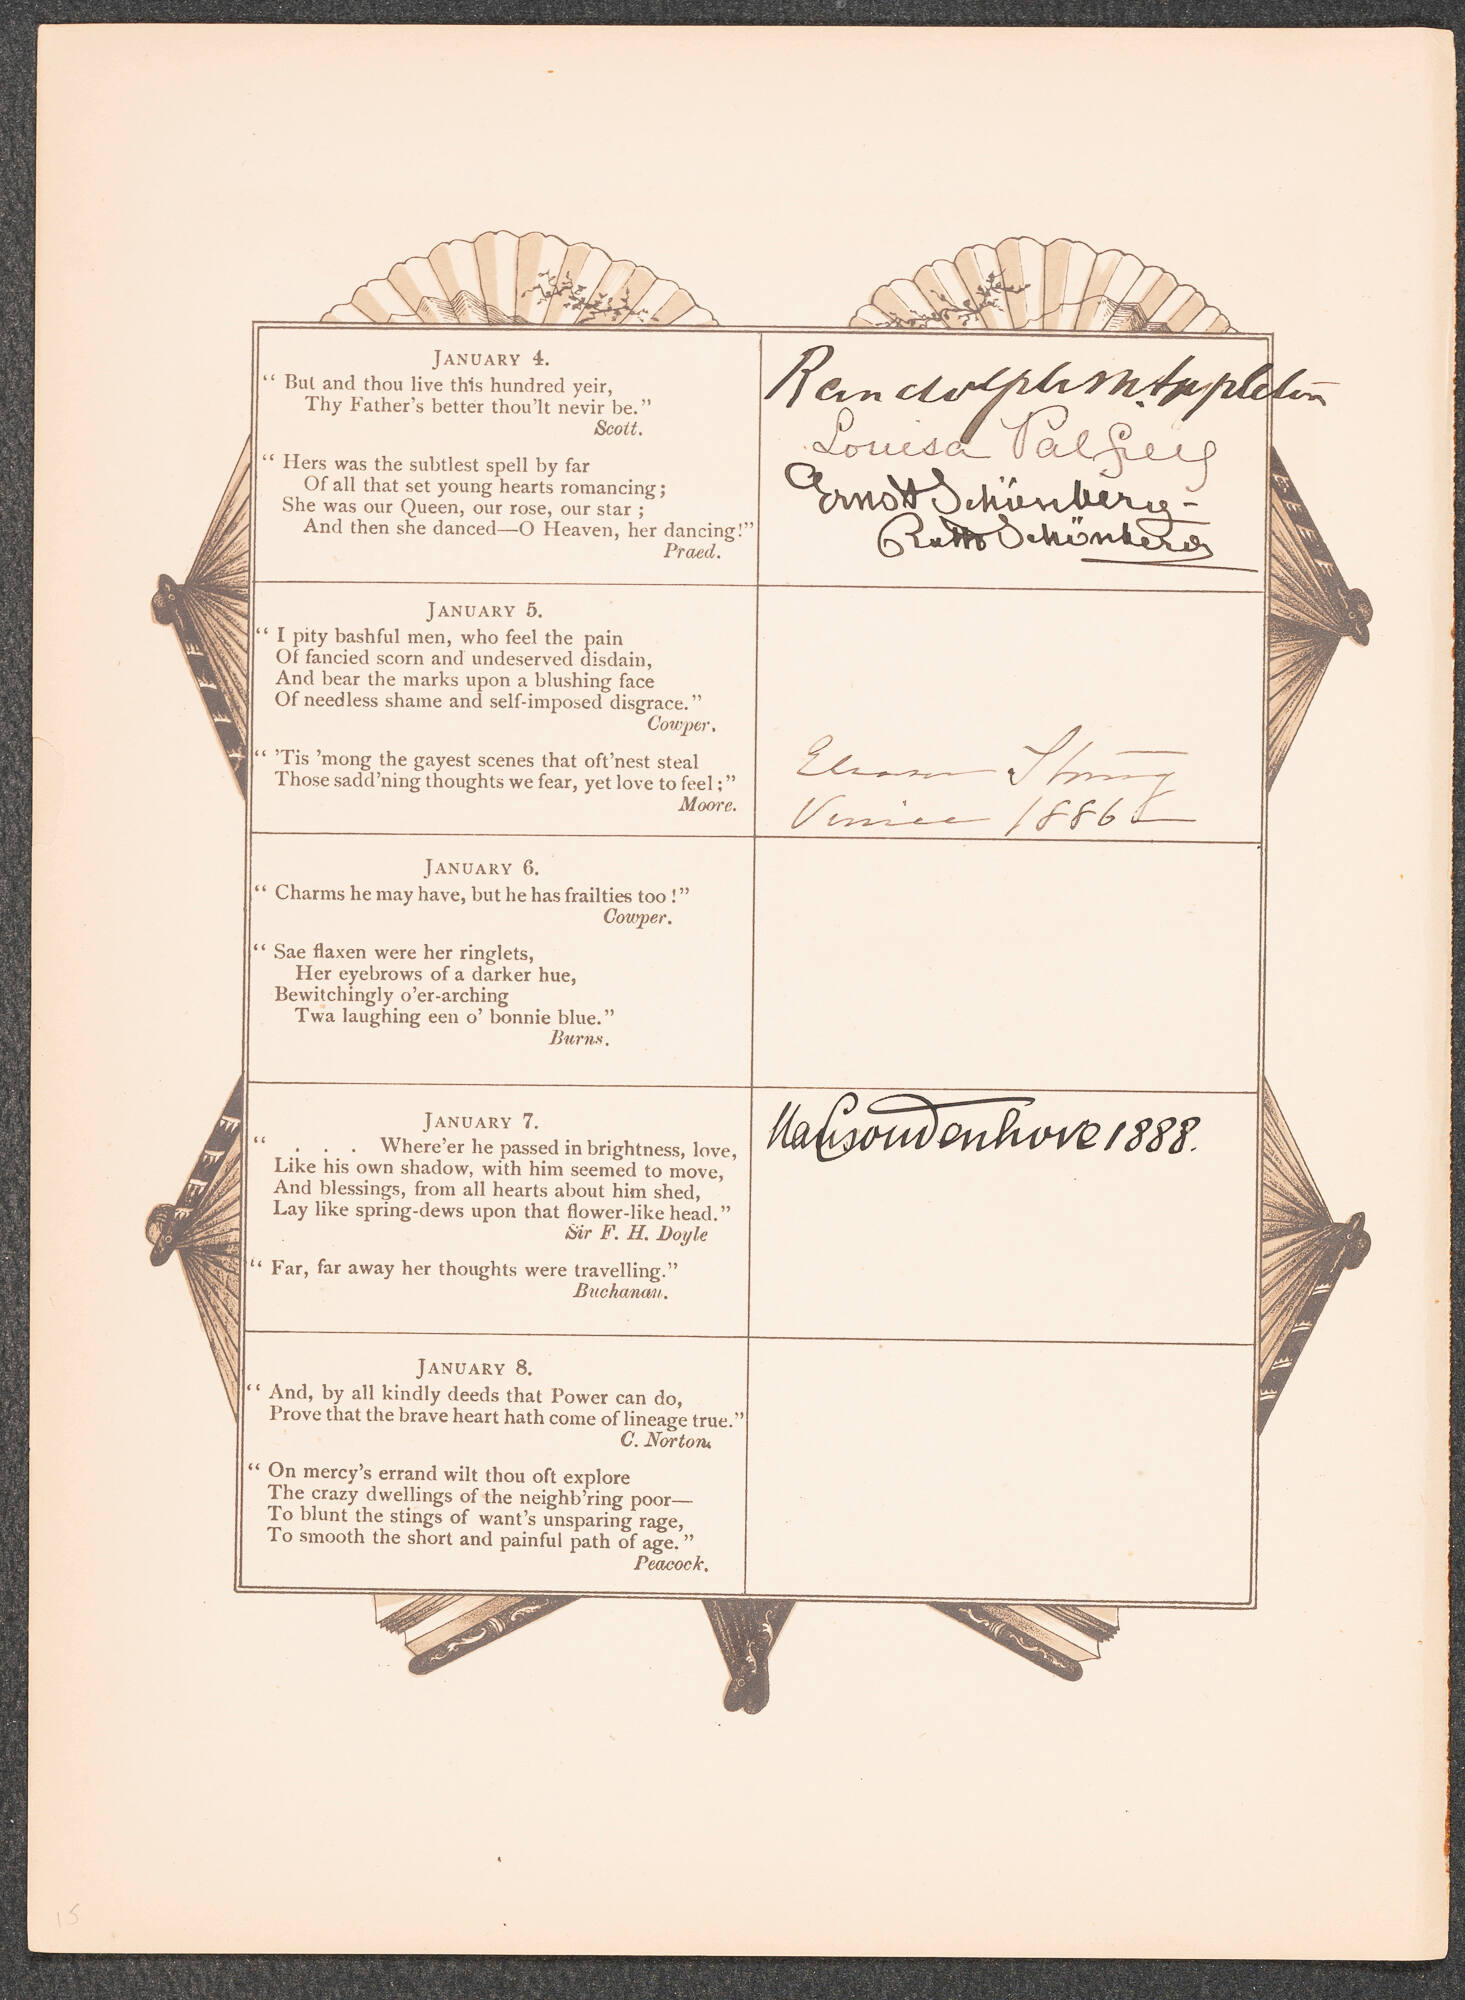 JANUARY 4.
“ But and thou live this hundred yeir,
Thy Father's better thou'lt nevir be.”
Scott.
“ Hers was the subtlest spell by far
Of all that set young hearts romancing;
She was our Queen, our rose, our star ;
And then she danced—O Heaven, her dancing!”
Praed.
Randolph M. Appleton
Louisa Palfrey
Schönberg -
Schönberg
JANUARY 5.
“ I pity bashful men, who feel the pain
Of fancied scorn and undeserved disdain,
And bear the marks upon a blushing face
Of needless shame and self-imposed disgrace.”
Cowper.
“ 'Tis 'mong the gayest scenes that oft'nest steal
Those sadd'ning thoughts we fear, yet love to feel ;”
Moore.
Venice 1886
JANUARY 6.
“ Charms he may have, but he has frailties too !”
Cowper.
“ Sae flaxen were her ringlets,
Her eyebrows of a darker hue,
Bewitchingly o'er-arching
Twa laughing een o' bonnie blue.”
Burns.
JANUARY 7.
“ . . . Where'er he passed in brightness, love,
Like his own shadow, with him seemed to move,
And blessings, from all hearts about him shed,
Lay like spring-dews upon that flower-like head.”
Sir F. H. Doyle
“ Far, far away her thoughts were travelling.”
Buchanan.
Coudenhove 1888.
JANUARY 8.
“ And, by all kindly deeds that Power can do,
Prove that the brave heart hath come of lineage true.”
C. Norton.
“ On mercy's errand wilt thou oft explore
The crazy dwellings of the neighb'ring poor—
To blunt the stings of want's unsparing rage,
To smooth the short and painful path of age.”
Peacock.
15